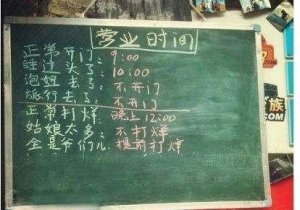 营业时间
正常开门：9:00
睡过头了：10:00
泡妞去了：不开门
旅行去了：不开门
正常打烊：晚上12:00
姑娘太多：不打烊
全是爷们儿：提前打烊
族
.COM